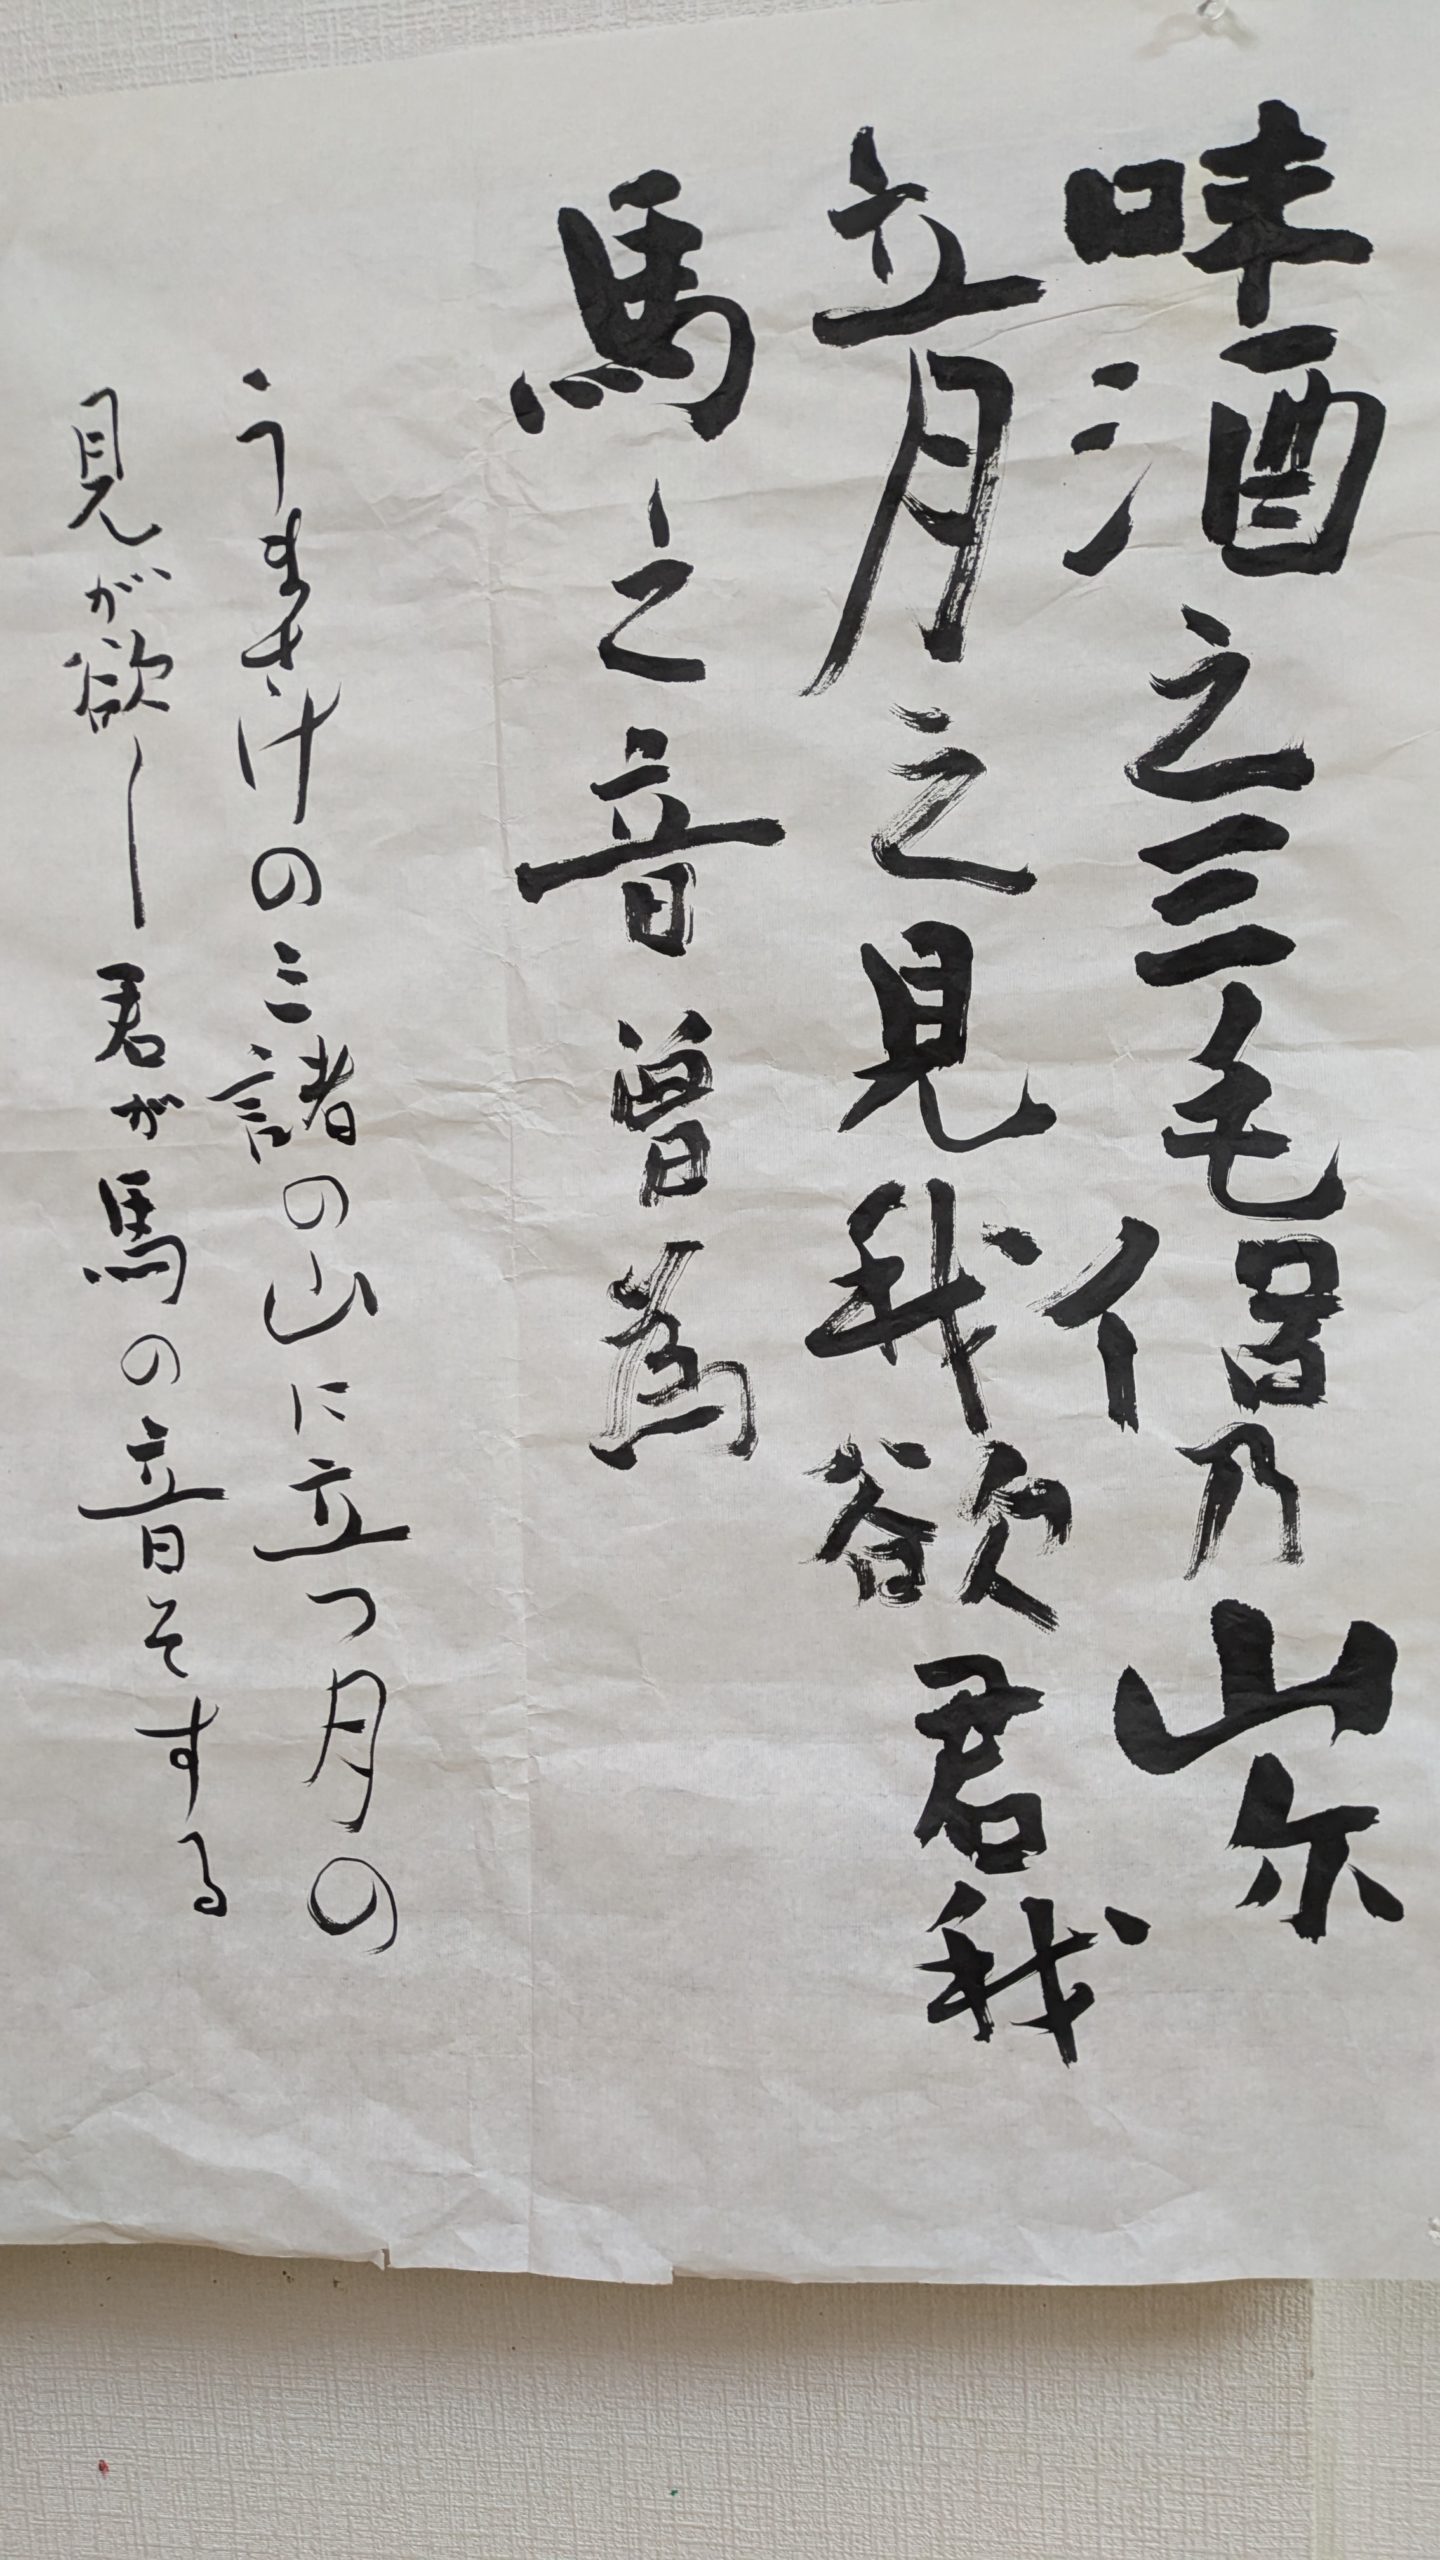 味酒之三毛侶乃山尓
立月之見我欲君我
馬之音曽為
うまさけの三諸の山に立つ月の
見が欲し君が馬の音そする